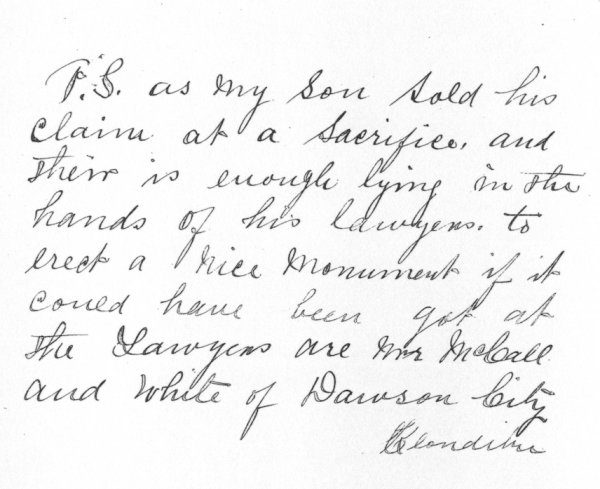 P.S. as my Son sold his
Claim at a Sacrifice. and
their is enough lying in the
hands of his lawyers. to
erect a nice Monument if it
could have been got at
the Lawyers are Mr McCall
and White of Dawson City
Klondike